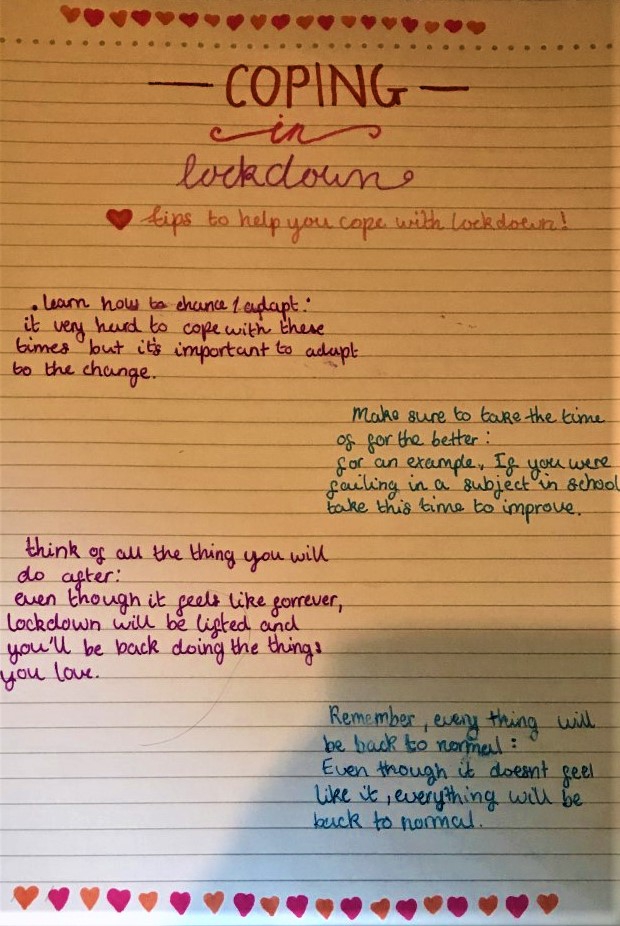 — COPING —
in
lockdown
tips to help you cope with lockdown!
. learn how to chance / adapt:
it very hard to cope with these
times but it's important to adapt
to the change.
Make sure to take the time
of for the better:
for an example, If you were
failing in a subject in school
take this time to improve.
think of all the thing you will
do after:
even though it feels like forrever,
lockdown will be lifted and
you'll be back doing the things
you love.
Remember, every thing will
be back to normal:
Even though it doesnt feel
like it, everything will be
back to normal.